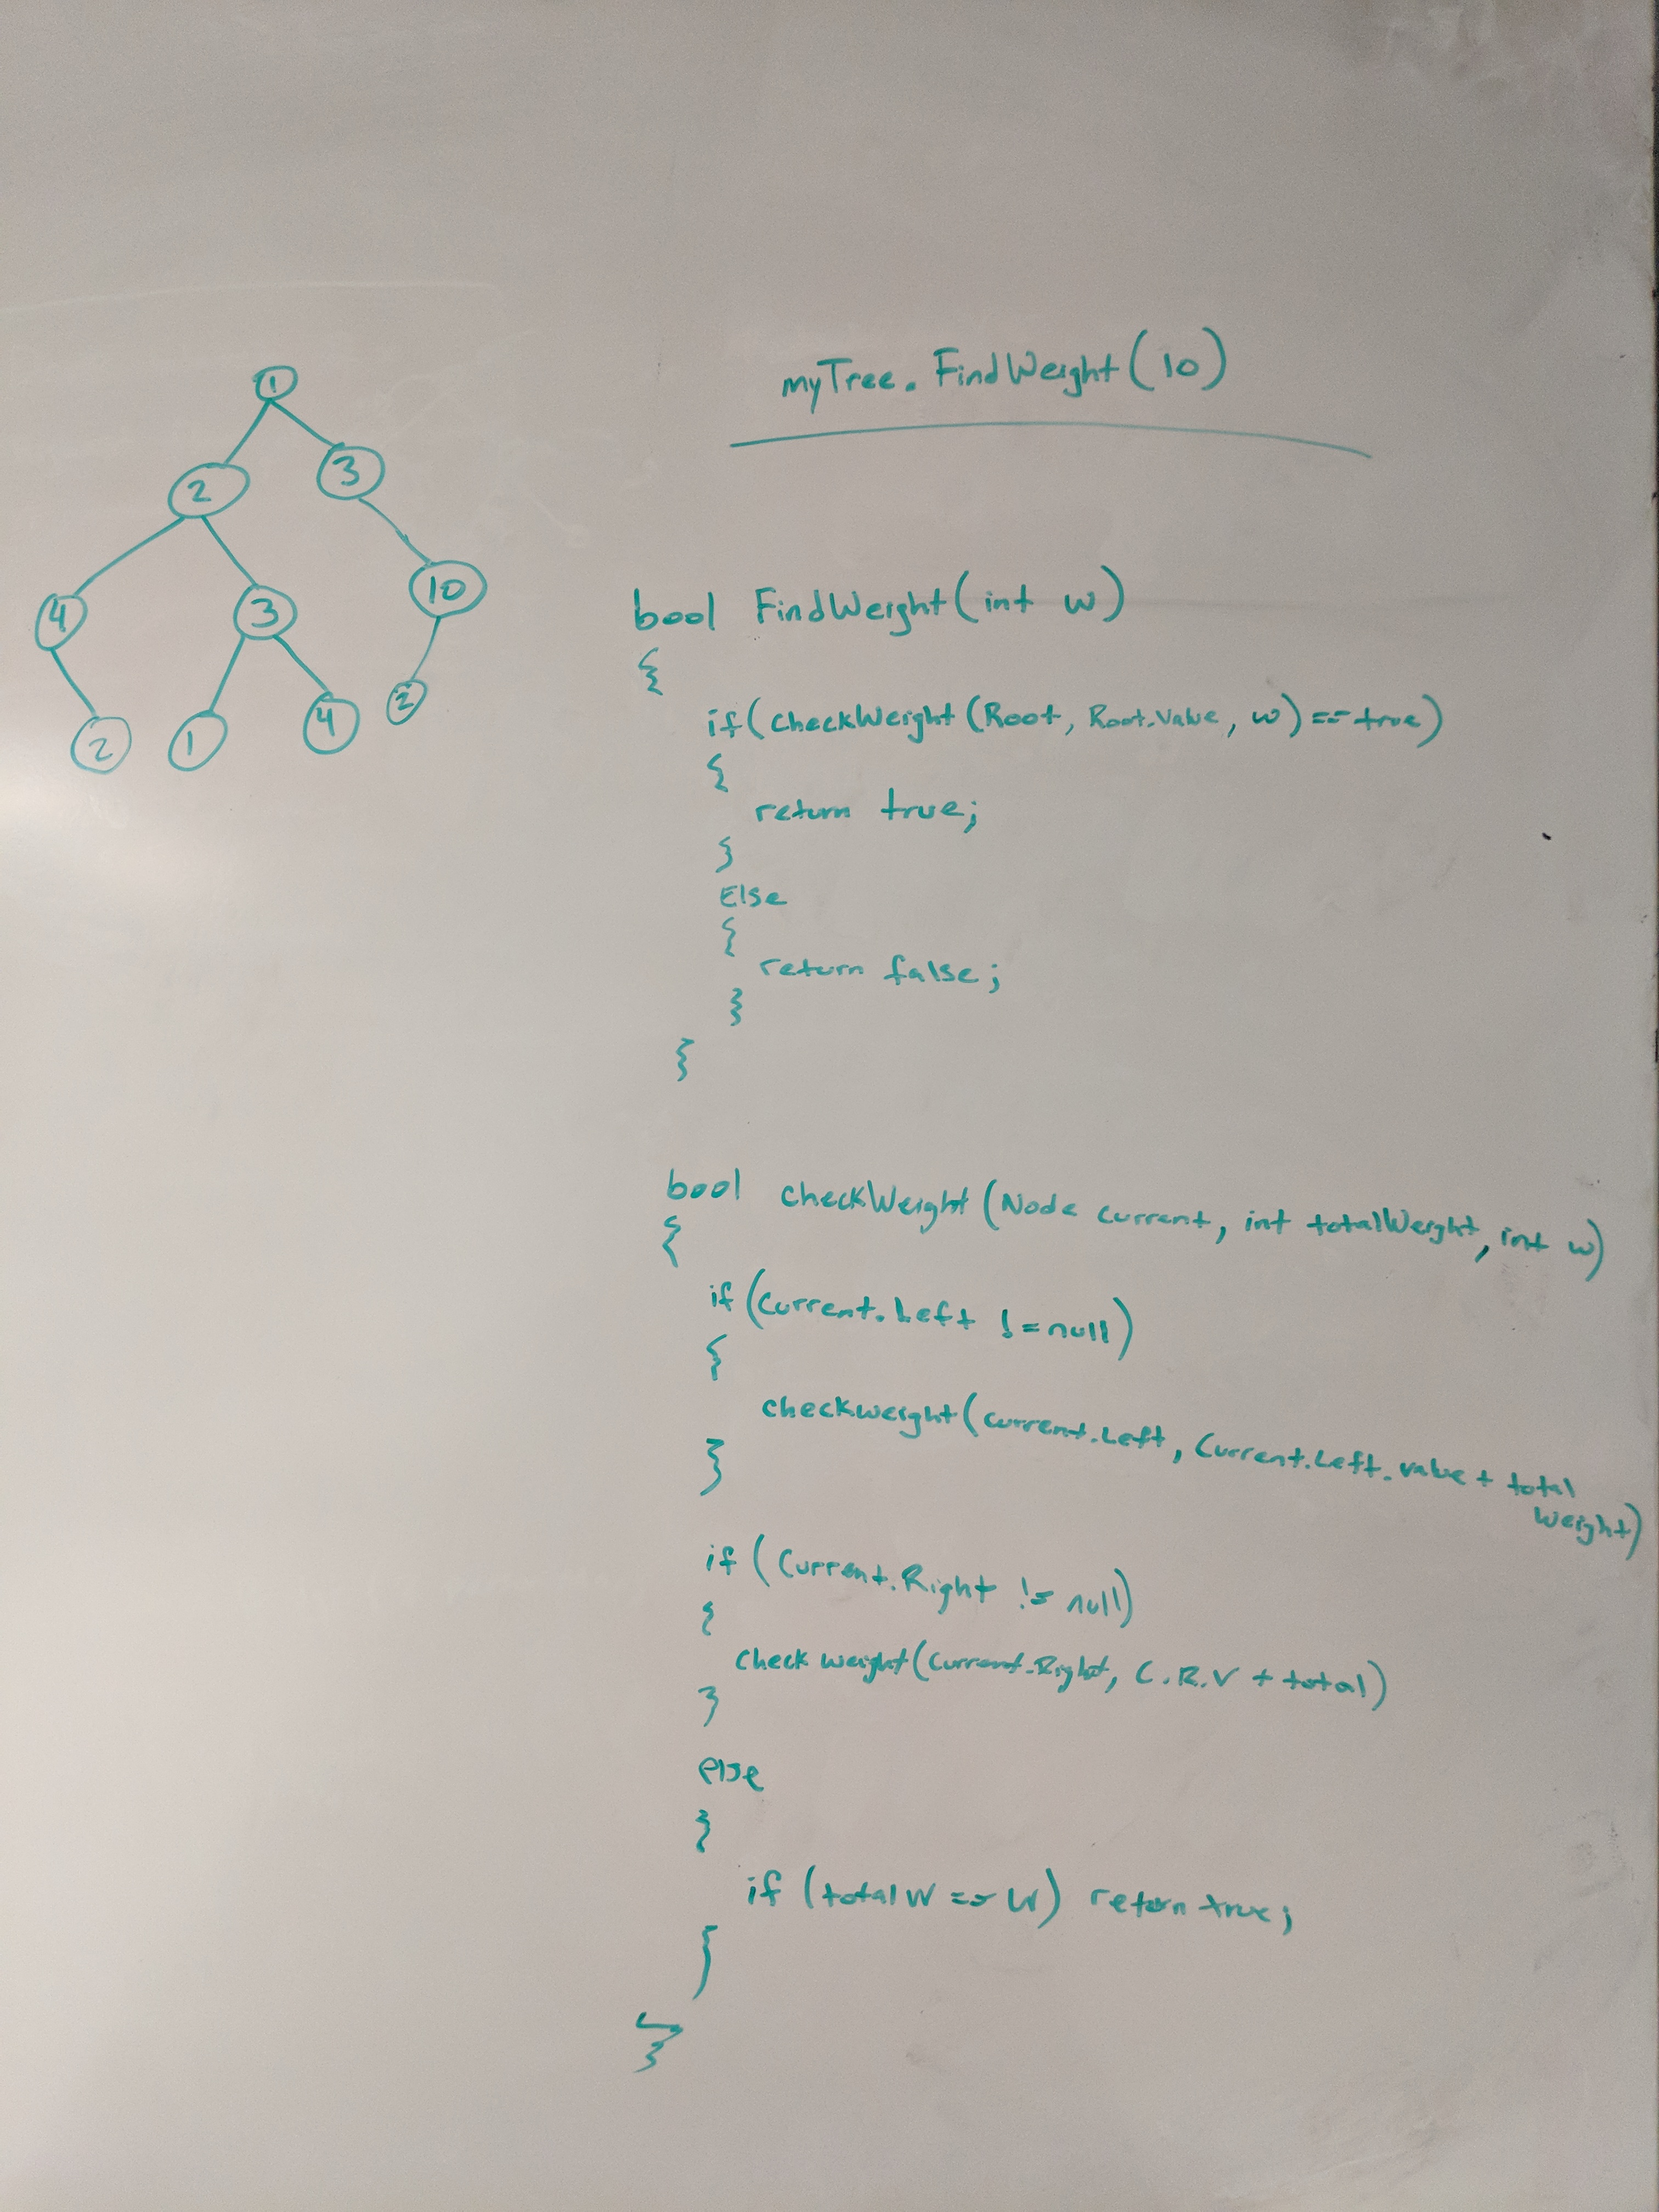 1
2
3
4
3
10
2
1
4
2
myTree.FindWeight(10)
bool FindWeight(int w)
{
if(checkWeight(Root, Root.Value, w) == true)
{
return true;
}
Else
{
return false;
}
}
bool checkWeight(Node current, int totalWeight, int w)
{
if(Current.Left != null)
{
checkweight(current.Left, Current.Left.value + total
Weight)
}
if (Current.Right != null)
{
check weight(Current.Right, C.R.V + total)
}
else
{
if (totalW == W) return true;
}
}